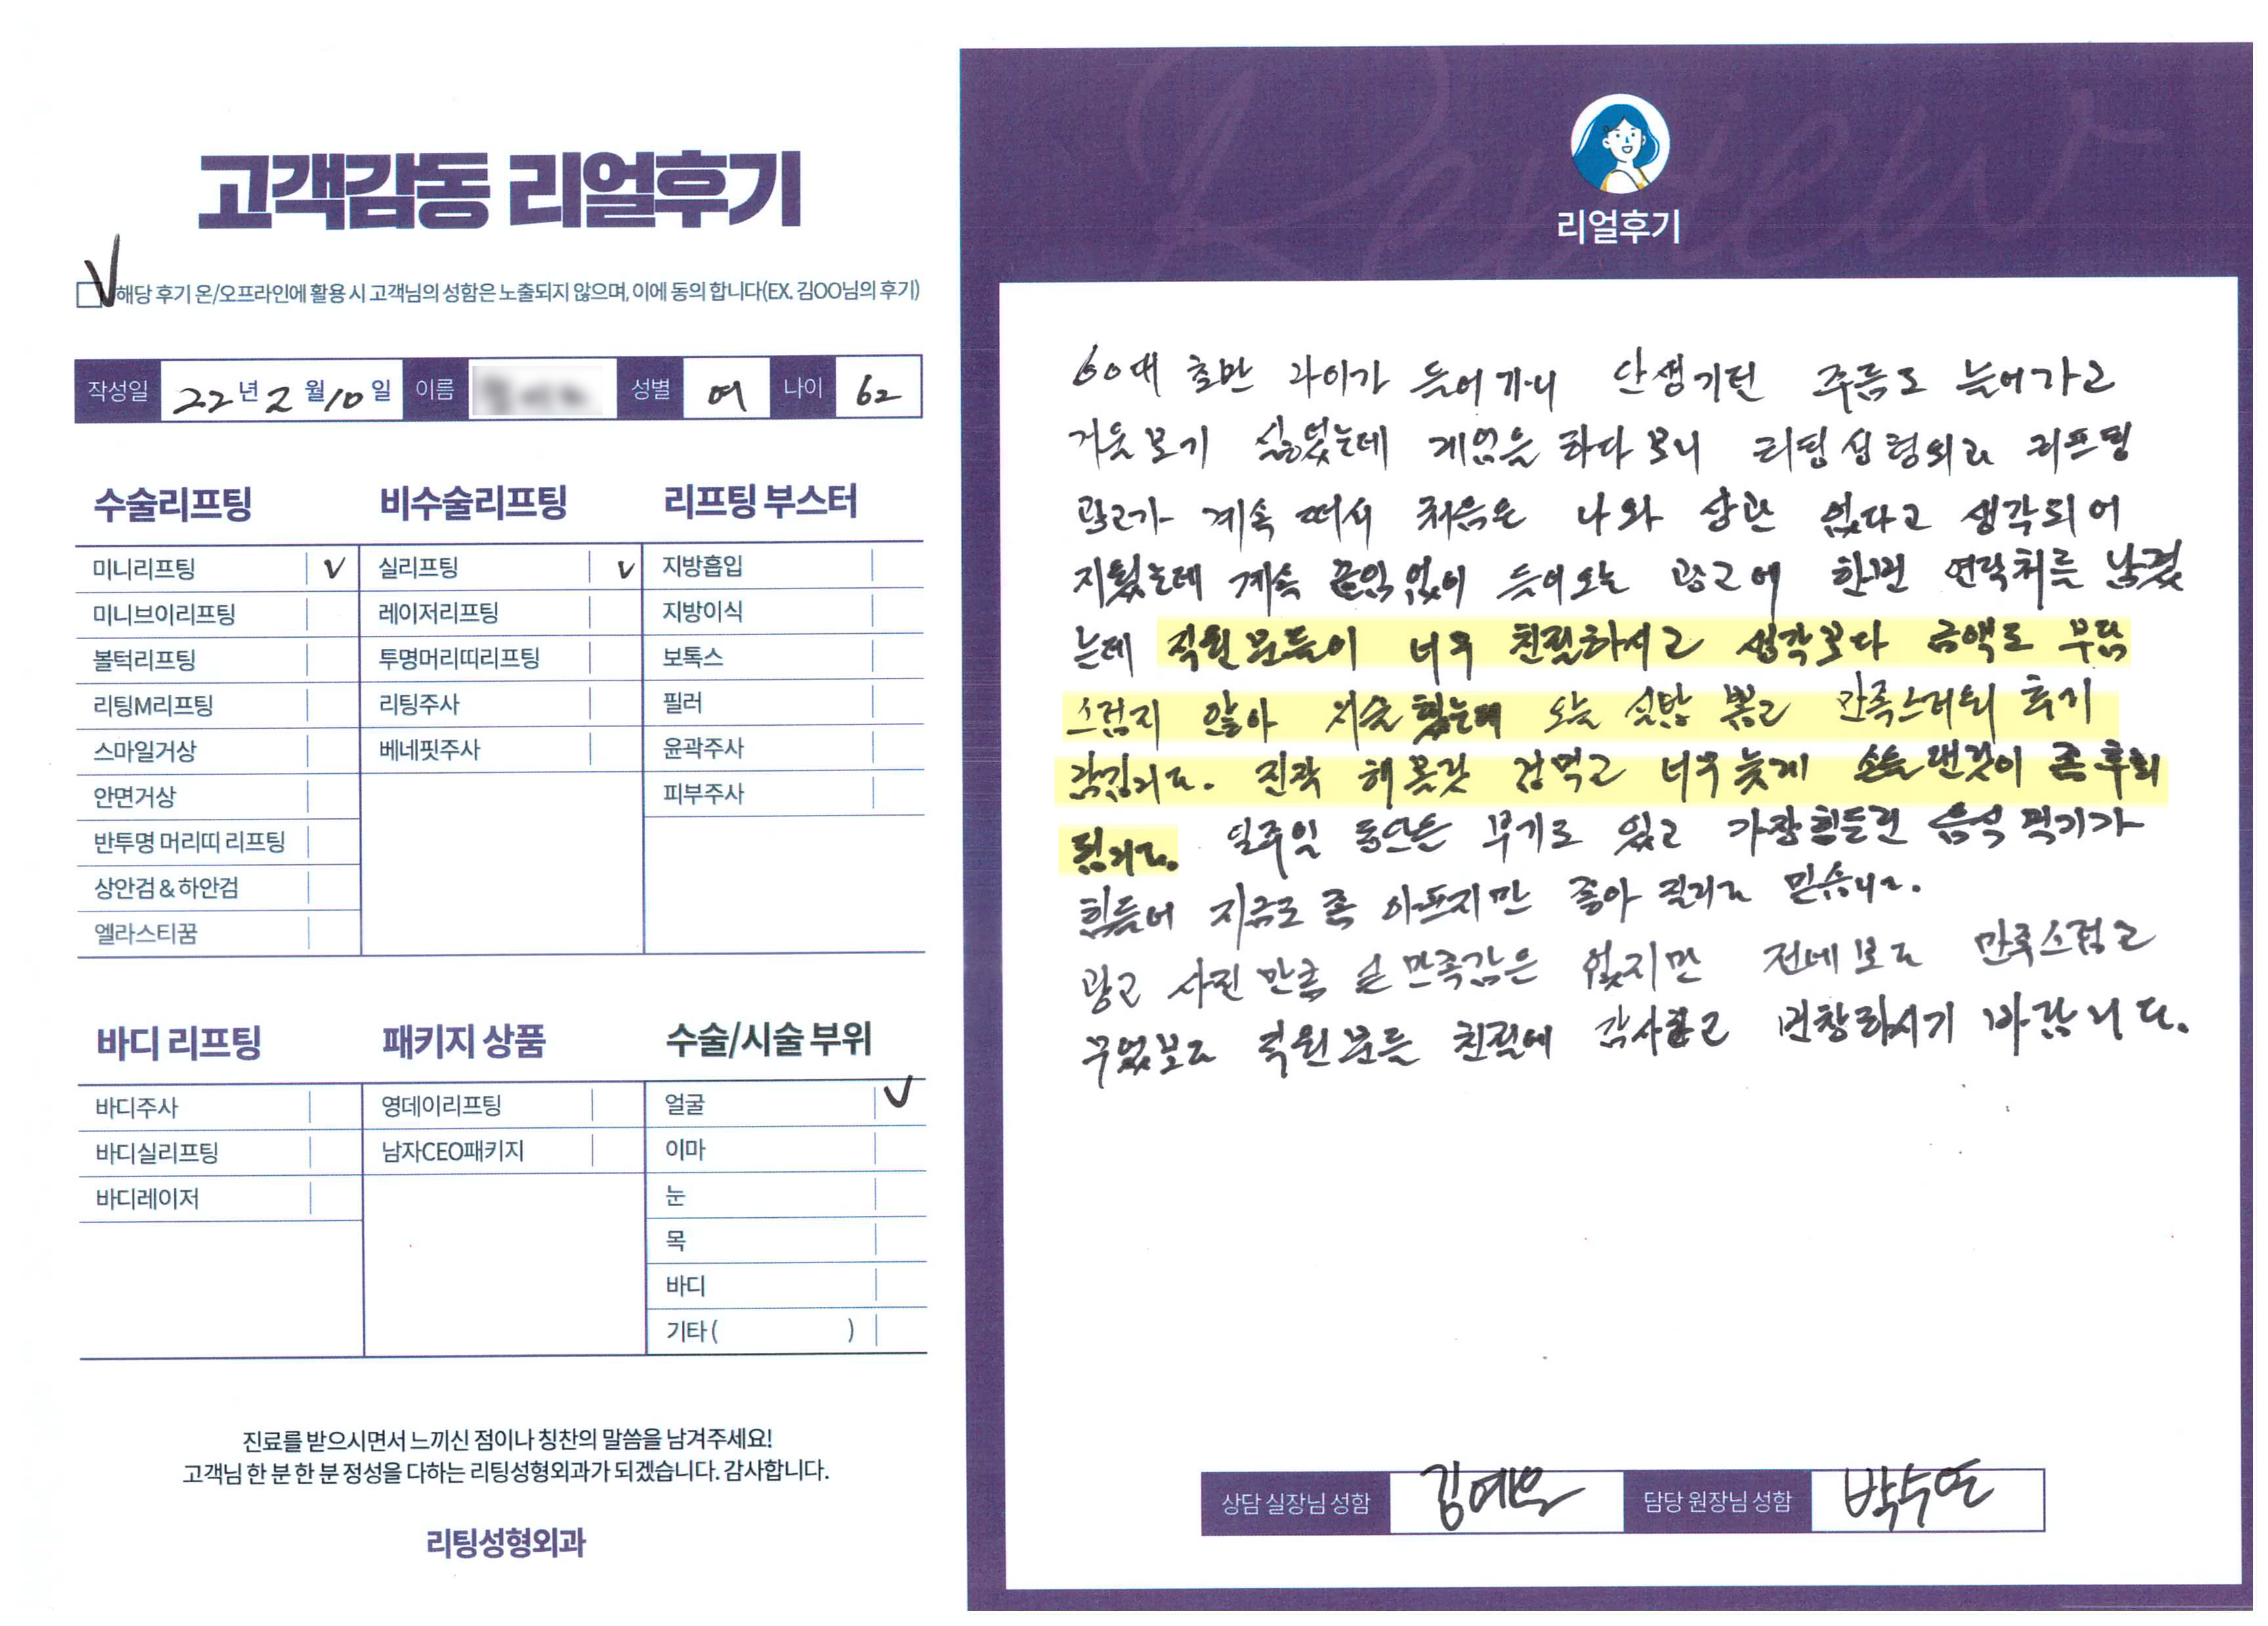 고객감동 리얼후기
해당 후기 온/오프라인에 활용 시 고객님의 성함은 노출되지 않으며, 이에 동의 합니다(EX. 김OO님의 후기)
작성일 22년 2월 10일 이름 성별 여 나이 62
수술리프팅
미니리프팅 V
미니브이리프팅
볼턱리프팅
리팅M리프팅
스마일거상
안면거상
반투명 머리띠 리프팅
상안검 & 하안검
엘라스티꿈
비수술리프팅
실리프팅 V
레이저리프팅
투명머리띠리프팅
리팅주사
베네핏주사
리프팅 부스터
지방흡입
지방이식
보톡스
필러
윤곽주사
피부주사
바디 리프팅
바디주사
바디실리프팅
바디레이저
패키지 상품
영데이리프팅
남자CEO패키지
수술/시술 부위
얼굴 V
이마
눈
목
바디
기타 ( )
진료를 받으시면서 느끼신 점이나 칭찬의 말씀을 남겨주세요!
고객님 한 분 한 분 정성을 다하는 리팅성형외과가 되겠습니다. 감사합니다.
리팅성형외과
Review
리얼후기
60대 초반 나이가 들어가니 안생기던 주름도 늘어가고
거울보기 싫었는데 게임을 하다보니 리팅성형외과 리프팅
광고가 계속 떠서 처음은 나와 상관 없다고 생각되어
지웠는데 계속 끝임없이 들어오는 광고에 한번 연락처를 남겼
는데 직원분들이 너무 친절하시고 생각보다 금액도 부담
스럽지 않아 시술 했는데 오늘 실밥 뽑고 만족스러워 후기
남깁니다. 진작 해볼것 겁먹고 너무 늦게 손을 댄것이 좀 후회
됩니다. 일주일 동안은 부기도 있고 가장 힘들건 음식 먹기가
힘들어 지금도 좀 아프지만 좋아 질거라 믿습니다.
광고 사진 만큼 만족감은 없지만 전에보다 만족스럽고
무엇보다 직원분들 친절에 감사하고 번창하시기 바랍니다.
상담 실장님 성함 담당 원장님 성함 박수연